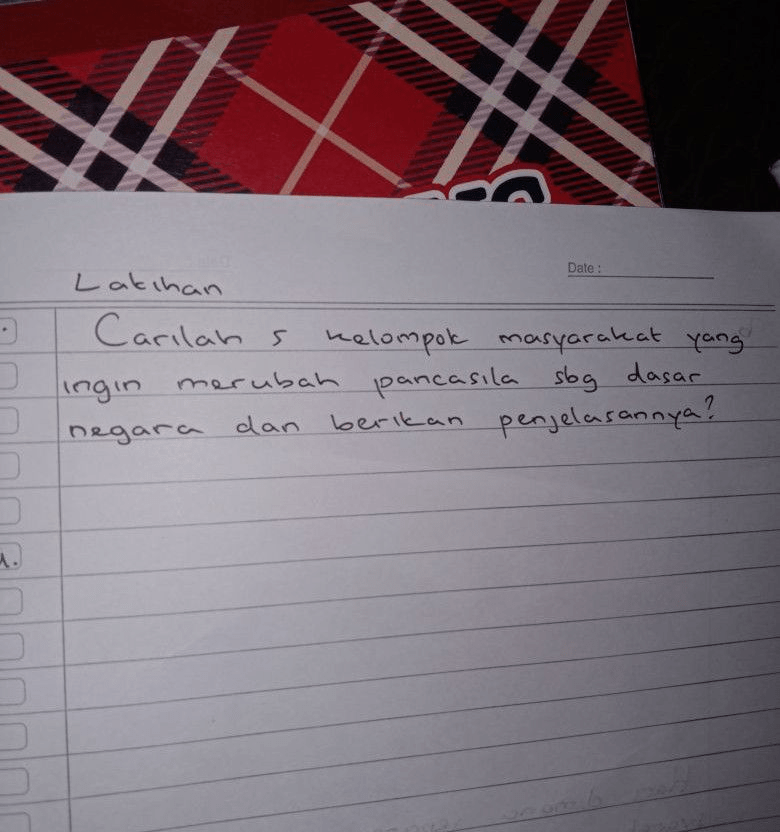 Date :
Latihan
Carilah 5 kelompok masyarakat yang
ingin merubah pancasila sbg dasar
negara dan berikan penjelasannya?